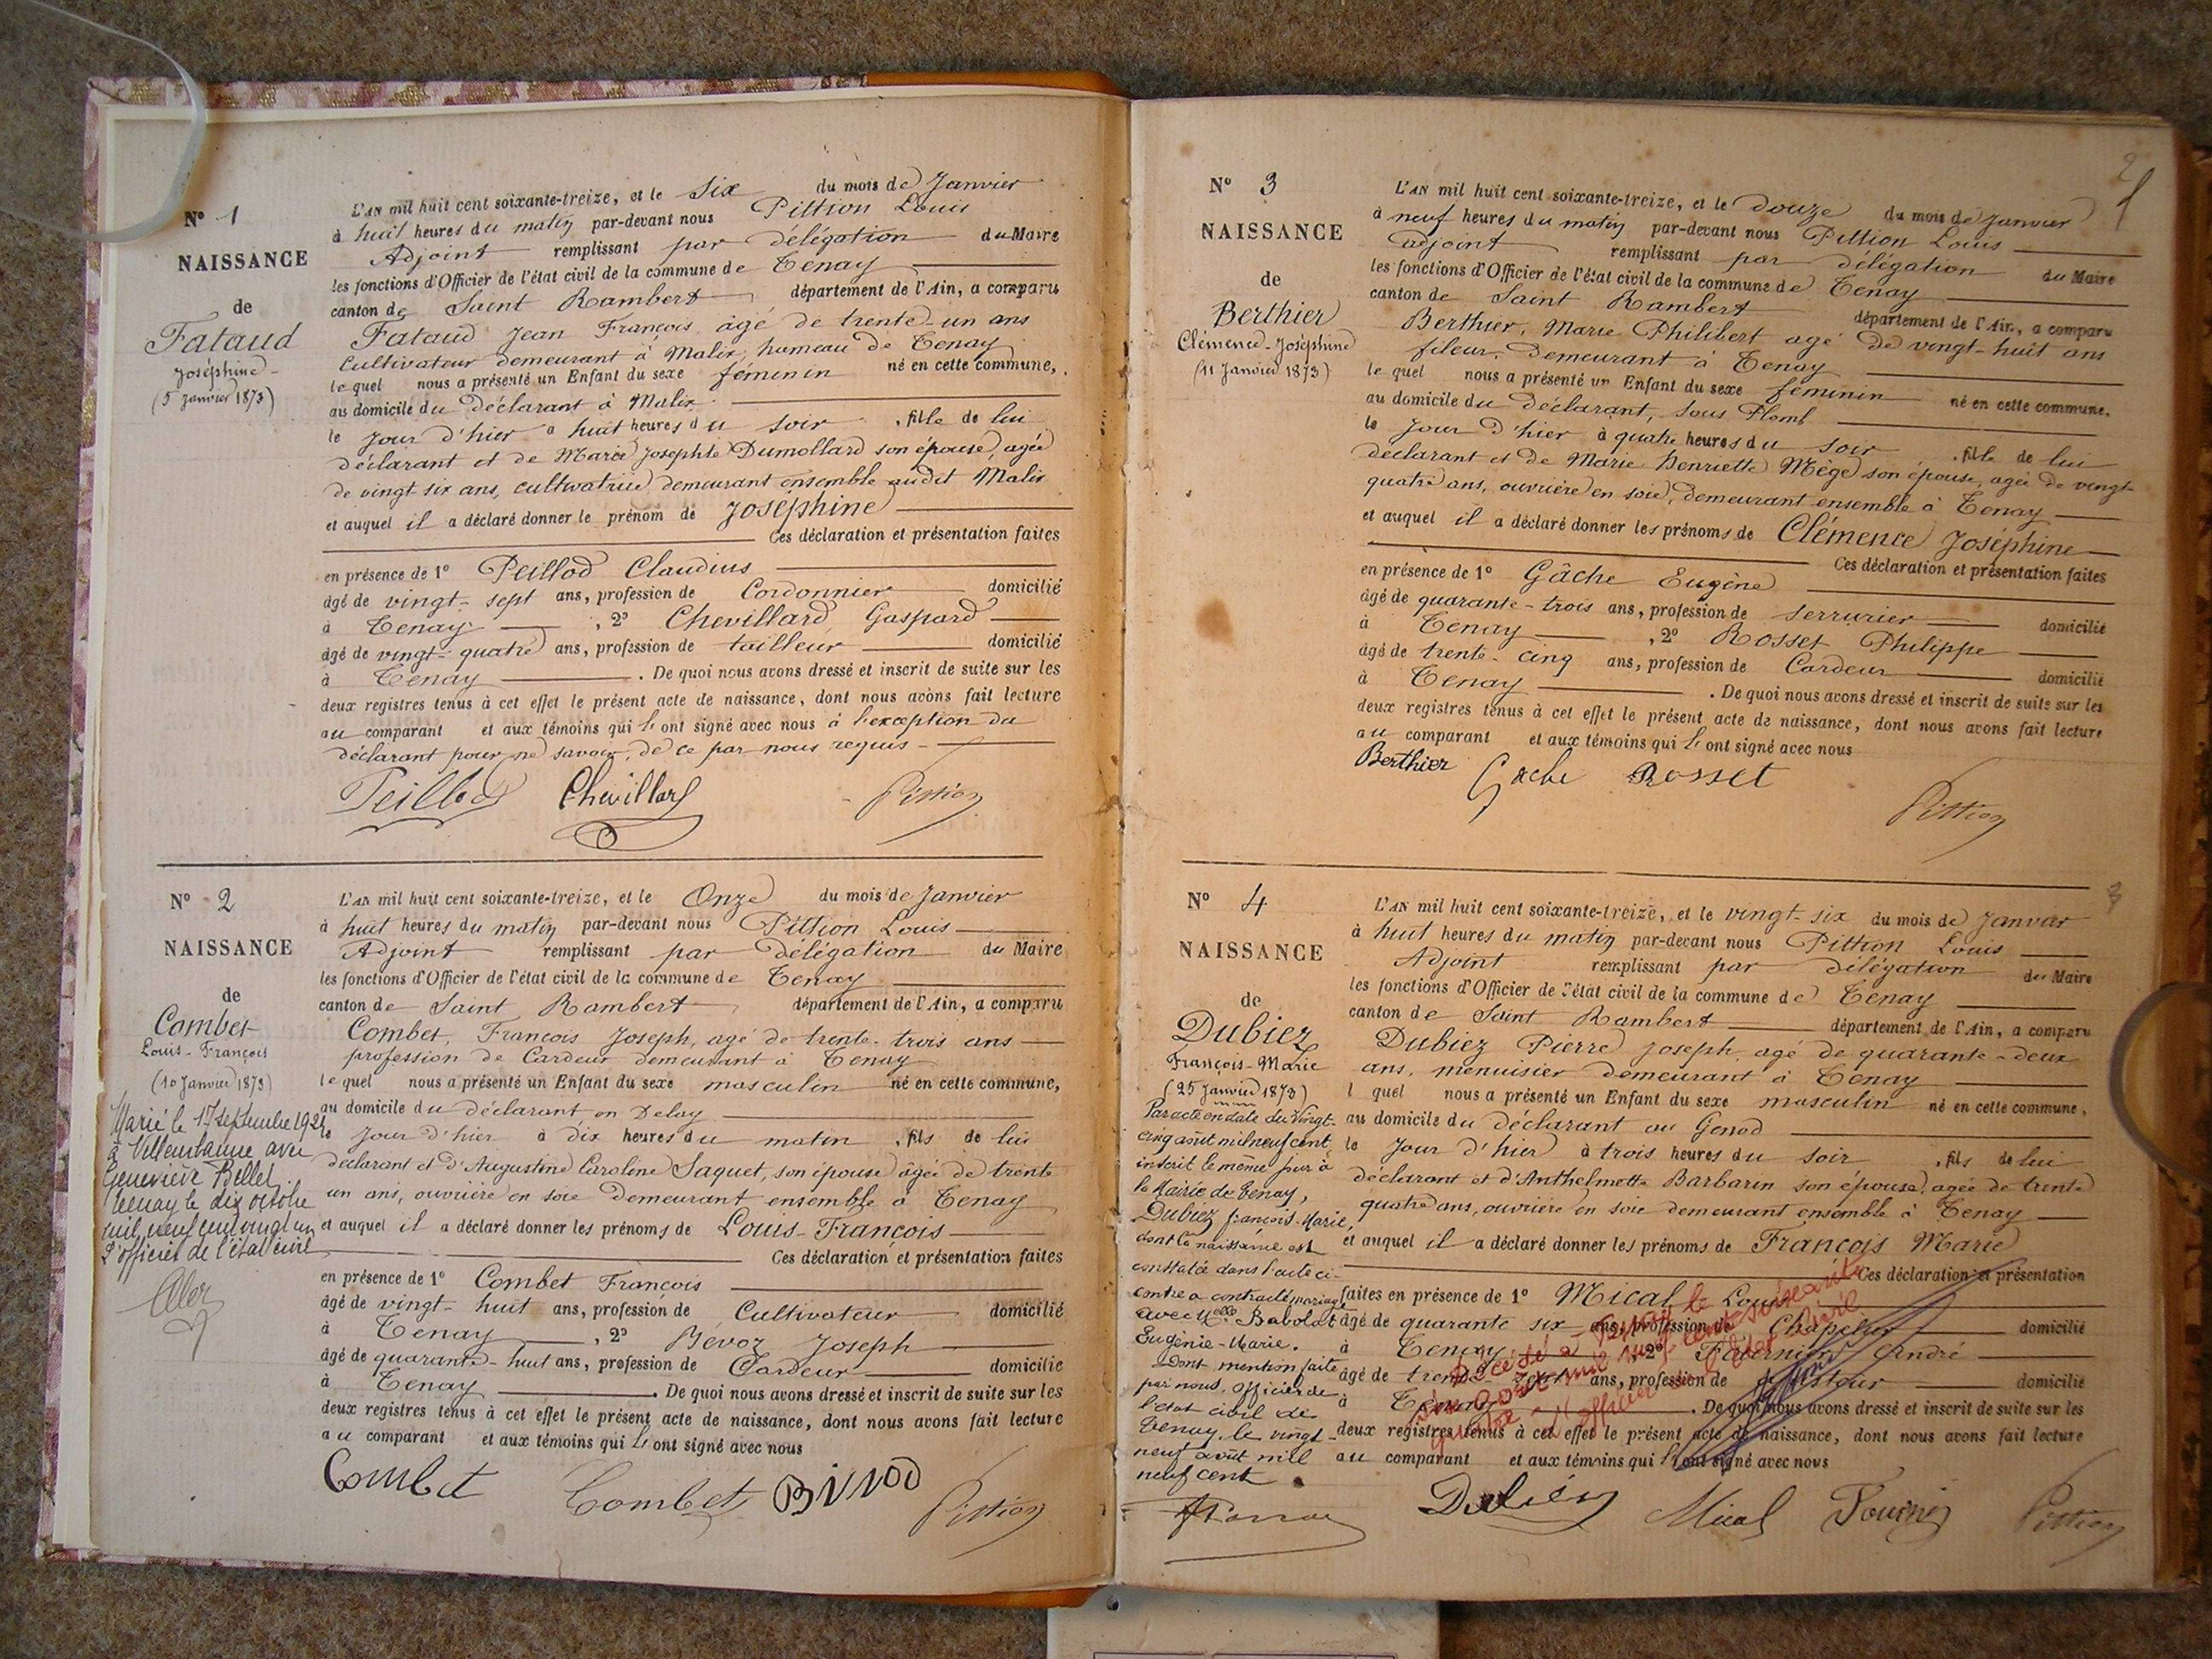 N° 1
NAISSANCE
de
Fataud
Joséphine
(5 Janvier 1873)
L'AN mil huit cent soixante-treize, et le Six du mois de Janvier
à huit heures du matin par-devant nous Pittion Louis
Adjoint remplissant par délégation du Maire
les fonctions d'Officier de l'état civil de la commune de Tenay
canton de Saint Rambert département de l'Ain, a comparu
Fataud Jean François âgé de trente-un ans
Cultivateur demeurant à Malix, hameau de Tenay
lequel nous a présenté un Enfant du sexe féminin né en cette commune,
au domicile du déclarant à Malix
le jour d'hier à huit heures du soir, fille de lui
déclarant et de Marie Josephte Dumollard son épouse, agée
de vingt six ans, cultivatrice, demeurant ensemble audit Malix
et auquel il a déclaré donner le prénom de Joséphine
Ces déclaration et présentation faites
en présence de 1° Peillod Claudius
âgé de vingt-sept ans, profession de Cordonnier domicilié
à Tenay, 2° Chevillard Gaspard
âgé de vingt-quatre ans, profession de tailleur domicilié
à Tenay. De quoi nous avons dressé et inscrit de suite sur les
deux registres tenus à cet effet le présent acte de naissance, dont nous avons fait lecture
au comparant et aux témoins qui l'ont signé avec nous à l'exception du
déclarant pour ne savoir, de ce par nous requis
Peillod Chevillard Pittion
N° 2
NAISSANCE
de
Combet
Louis-François
(10 Janvier 1873)
Marié le 17 septembre 1921
à Villeurbanne avec
Geneviève Bellet.
Tenay le dix octobre
mil neuf cent vingt un
L'officier de l'état civil
L'AN mil huit cent soixante-treize, et le Onze du mois de Janvier
à huit heures du matin par-devant nous Pittion Louis
Adjoint remplissant par délégation du Maire
les fonctions d'Officier de l'état civil de la commune de Tenay
canton de Saint Rambert département de l'Ain, a comparu
Combet, François Joseph, agé de trente-trois ans
profession de Cardeur demeurant à Tenay
lequel nous a présenté un Enfant du sexe masculin né en cette commune,
au domicile du déclarant en Delay
le jour d'hier à dix heures du matin, fils de lui
déclarant et d'Augustine Caroline Saquet, son épouse âgée de trente
un ans, ouvrière en soie demeurant ensemble à Tenay
et auquel il a déclaré donner les prénoms de Louis-François
Ces déclaration et présentation faites
en présence de 1° Combet François
âgé de vingt-huit ans, profession de Cultivateur domicilié
à Tenay, 2° Bévoz Joseph
âgé de quarante-huit ans, profession de Cardeur domicilié
à Tenay. De quoi nous avons dressé et inscrit de suite sur les
deux registres tenus à cet effet le présent acte de naissance, dont nous avons fait lecture
au comparant et aux témoins qui l'ont signé avec nous
Combet Combet Pittion
2
N° 3
NAISSANCE
de
Berthier
Clémence-Joséphine
(11 Janvier 1873)
L'AN mil huit cent soixante-treize, et le douze du mois de Janvier
à neuf heures du matin par-devant nous Pittion Louis
adjoint remplissant par délégation du Maire
les fonctions d'Officier de l'état civil de la commune de Tenay
canton de Saint Rambert département de l'Ain, a comparu
Berthier, Marie Philibert agé de vingt-huit ans
fileur, demeurant à Tenay
lequel nous a présenté un Enfant du sexe féminin né en cette commune,
au domicile du déclarant, sous Plomb
le jour d'hier à quatre heures du soir, fille de lui
déclarant et de Marie Henriette Mège son épouse, agée de vingt-
quatre ans, ouvrière en soie, demeurant ensemble à Tenay
et auquel il a déclaré donner les prénoms de Clémence Joséphine
Ces déclaration et présentation faites
en présence de 1° Gâche Eugène
âgé de quarante-trois ans, profession de serrurier domicilié
à Tenay, 2° Rosset Philippe
âgé de trente-cinq ans, profession de Cardeur domicilié
à Tenay. De quoi nous avons dressé et inscrit de suite sur les
deux registres tenus à cet effet le présent acte de naissance, dont nous avons fait lecture
au comparant et aux témoins qui l'ont signé avec nous
Berthier Gache Rosset
Pittion
N° 4
NAISSANCE
de
Dubiez
François-Marie
(25 Janvier 1873)
Par acte en date du Vingt-
cinq août mil neuf cent,
inscrit le même jour à
la Mairie de Tenay,
Dubiez François-Marie,
dont la naissance est
constatée dans l'acte ci-
contre a contracté mariage
avec Melle Babolat
Eugénie-Marie.
Dont mention faite
par nous, officier de
l'état civil de
Tenay, le vingt-
neuf août mil
neuf cent
L'AN mil huit cent soixante-treize, et le vingt-six du mois de Janvier
à huit heures du matin par-devant nous Pittion Louis
Adjoint remplissant par délégation du Maire
les fonctions d'Officier de l'état civil de la commune de Tenay
canton de Saint Rambert département de l'Ain, a comparu
Dubiez Pierre Joseph, agé de quarante-deux
ans, menuisier demeurant à Tenay
lquel nous a présenté un Enfant du sexe masculin né en cette commune,
au domicile du déclarant au Genod
le jour d'hier à trois heures du soir, fils de lui
déclarant et d'Anthelmette Barbarin son épouse, agée de trente
quatre ans, ouvrière en soie demeurant ensemble à Tenay
et auquel il a déclaré donner les prénoms de François Marie
Ces déclaration et présentation
faites en présence de 1° Mical Louis
âgé de quarante six ans, profession de Chapelier domicilié
à Tenay, 2° Fournier André
âgé de trente- ans, profession de domicilié
à Tenay. De quoi nous avons dressé et inscrit de suite sur les
deux registres tenus à cet effet le présent acte de naissance, dont nous avons fait lecture
au comparant et aux témoins qui l'ont signé avec nous
Décédé à Tenay le
août mil neuf cent soixante
L'officier de l'état civil
Dubiez Mical Fournier Pittion